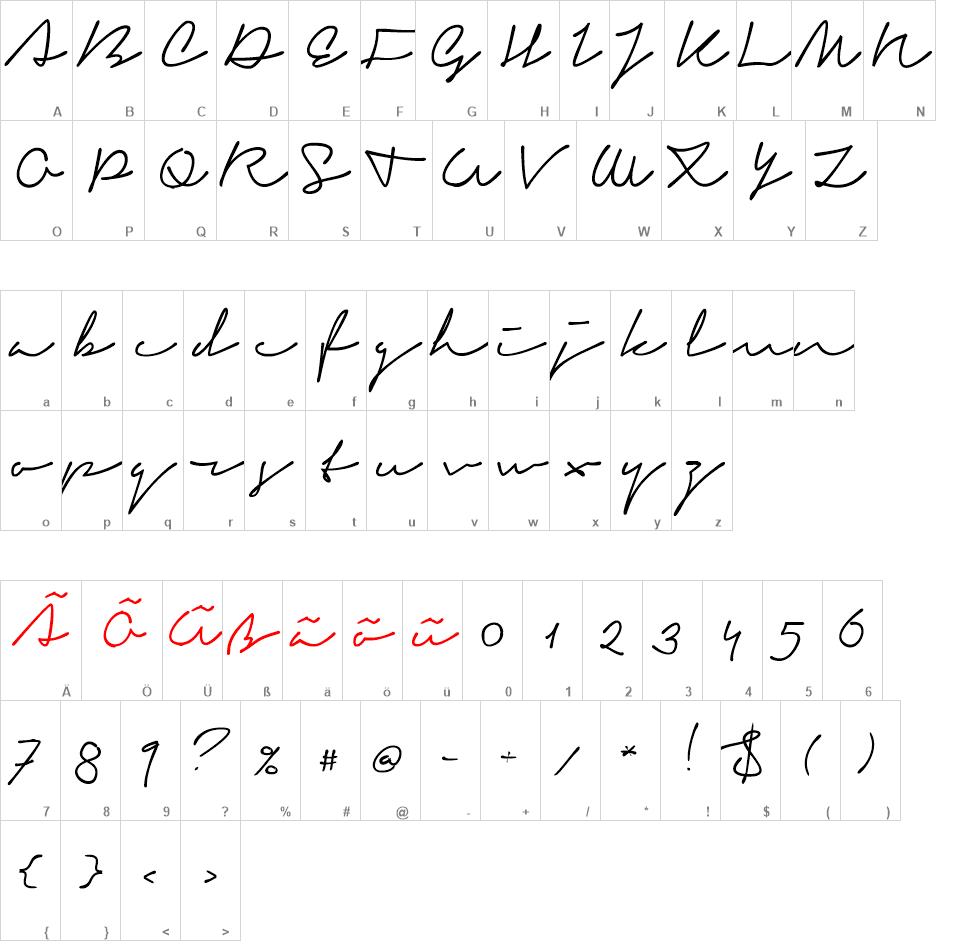 A B C D E F G H I J K L M N
A B C D E F G H I J K L M N
O P Q R S T U V W X Y Z
O P Q R S T U V W X Y Z
a b c d e f g h i j k l m n
a b c d e f g h i j k l m n
o p q r s t u v w x y z
o p q r s t u v w x y z
Ã Õ Ũ ß ã õ ũ 0 1 2 3 4 5 6
Ä Ö Ü ß ä ö ü 0 1 2 3 4 5 6
7 8 9 ? % # @ - + / * ! $ ( )
7 8 9 ? % # @ - + / * ! $ ( )
{ } < >
{ } < >